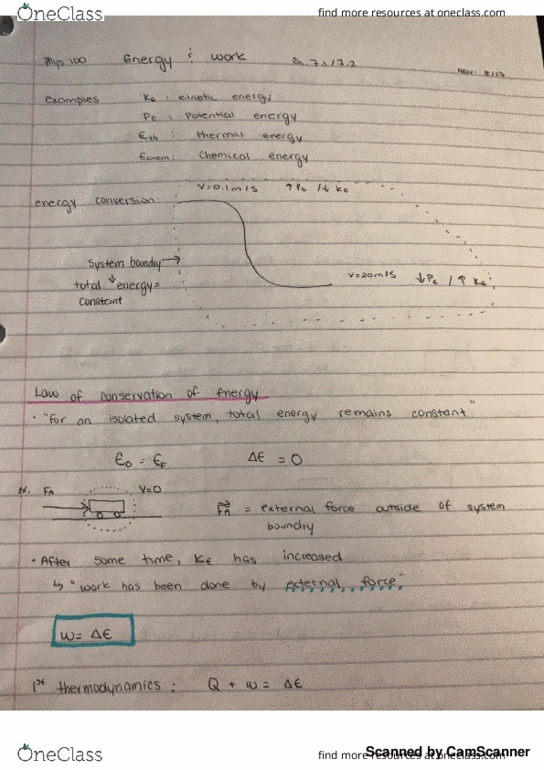 OneClass
find more resources at oneclass.com
Phys 100 Energy & work Ch. 7.1/7.2
Nov. 8/17
examples KE : kinetic energy
PE : Potential energy
Eth : thermal energy
Echem : Chemical energy
V=0.1m/s ↑PE /↓ KE
energy conversion:
System boundry →
V=20m/s ↓PE / ↑ KE
total energy=
constant
Law of conservation of Energy
· "For an isolated system, total energy remains constant"
E0 = EF ΔE = 0
ex. FA V=0
FA = external force outside of system
boundry
· After some time, KE has increased
↳ "work has been done by external force"
W= ΔE
1st thermodynamics : Q + W = ΔE
OneClass
find more resources at oneclass.com
Scanned by CamScanner